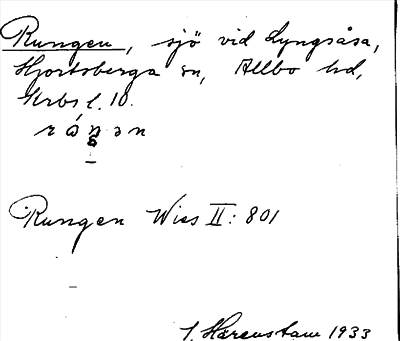 Rungen, sjö vid Lyngsåsa,
Hjortsberga sn, Allbo hd,
Krbs l. 10.
Rungen Wies II: 801
I. Härenstam 1933